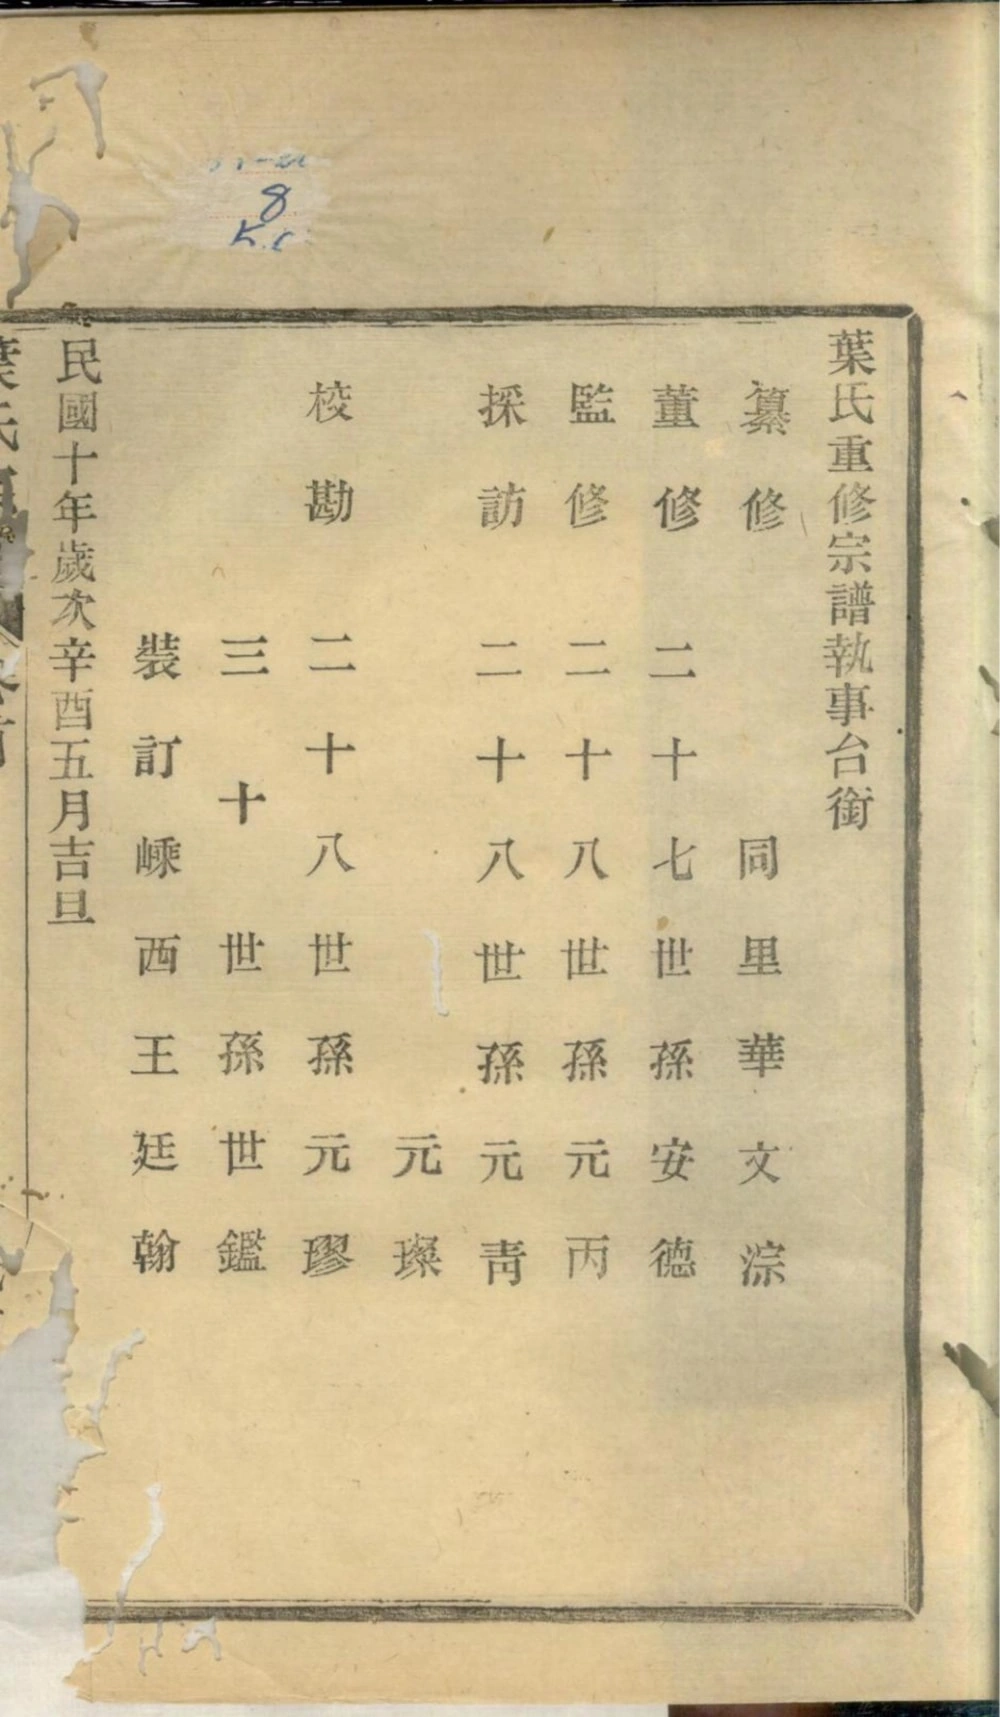 葉氏重修宗譜執事台銜
纂修 同里華文淙
董修 二十七世孫安德
監修 二十八世孫元丙
採訪 二十八世孫元青
元璨
校勘 二十八世孫元璆
三十世孫世鑑
裝訂嵊西王廷翰
民國十年歲次辛酉五月吉旦
葉氏
8